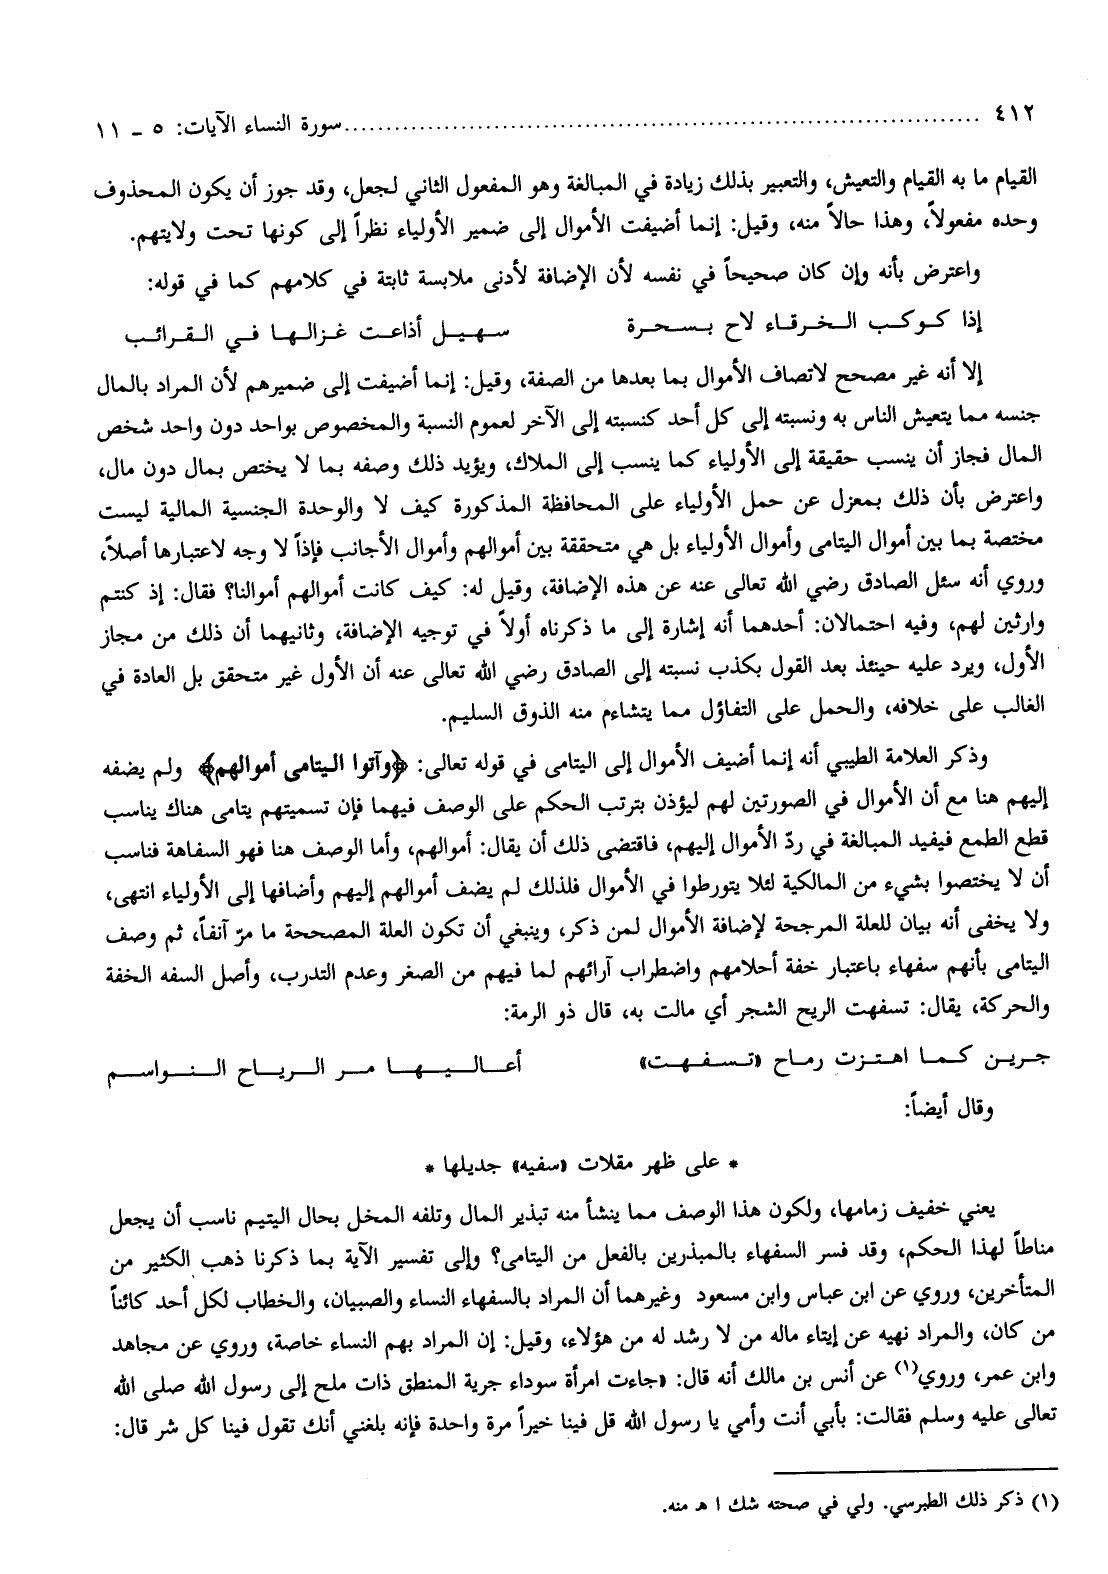 ٤١٢ ........................................ سورة النساء الآيات: ٥ - ١١
القيام ما به القيام والتعيش، والتعبير بذلك زيادة في المبالغة وهو المفعول الثاني لجعل، وقد جوز أن يكون المحذوف
وحده مفعولاً، وهذا حالاً منه، وقيل: إنما أضيفت الأموال إلى ضمير الأولياء نظراً إلى كونها تحت ولايتهم.
واعترض بأنه وإن كان صحيحاً في نفسه لأن الإضافة لأدنى ملابسة ثابتة في كلامهم كما في قوله:
إذا كوكب الخرقاء لاح بسحرة سهيل أذاعت غزالها في القرائب
إلا أنه غير مصحح لاتصاف الأموال بما بعدها من الصفة، وقيل: إنما أضيفت إلى ضميرهم لأن المراد بالمال
جنسه مما يتعيش الناس به ونسبته إلى كل أحد كنسبته إلى الآخر لعموم النسبة والمخصوص بواحد دون واحد شخص
المال فجاز أن ينسب حقيقة إلى الأولياء كما ينسب إلى الملاك، ويؤيد ذلك وصفه بما لا يختص بمال دون مال،
واعترض بأن ذلك بمعزل عن حمل الأولياء على المحافظة المذكورة كيف لا والوحدة الجنسية المالية ليست
مختصة بما بين أموال اليتامى وأموال الأولياء بل هي متحققة بين أموالهم وأموال الأجانب فإذاً لا وجه لاعتبارها أصلاً،
وروي أنه سئل الصادق رضي الله تعالى عنه عن هذه الإضافة، وقيل له: كيف كانت أموالهم أموالنا؟ فقال: إذ كنتم
وارثين لهم، وفيه احتمالان: أحدهما أنه إشارة إلى ما ذكرناه أولاً في توجيه الإضافة، وثانيهما أن ذلك من مجاز
الأول، ويرد عليه حينئذ بعد القول بكذب نسبته إلى الصادق رضي الله تعالى عنه أن الأول غير متحقق بل العادة في
الغالب على خلافه، والحمل على التفاؤل مما يتشاءم منه الذوق السليم.
وذكر العلامة الطيبي أنه إنما أضيف الأموال إلى اليتامى في قوله تعالى: ﴿وآتوا اليتامى أموالهم﴾ ولم يضفه
إليهم هنا مع أن الأموال في الصورتين لهم ليؤذن بترتب الحكم على الوصف فيهما فإن تسميتهم يتامى هناك يناسب
قطع الطمع فيفيد المبالغة في ردّ الأموال إليهم، فاقتضى ذلك أن يقال: أموالهم، وأما الوصف هنا فهو السفاهة فناسب
أن لا يختصوا بشيء من المالكية لئلا يتورطوا في الأموال فلذلك لم يضف أموالهم إليهم وأضافها إلى الأولياء انتهى،
ولا يخفى أنه بيان للعلة المرجحة لإضافة الأموال لمن ذكر، وينبغي أن تكون العلة المصححة ما مرّ آنفاً، ثم وصف
اليتامى بأنهم سفهاء باعتبار خفة أحلامهم واضطراب آرائهم لما فيهم من الصغر وعدم التدرب، وأصل السفه الخفة
والحركة، يقال: تسفهت الريح الشجر أي مالت به، قال ذو الرمة:
جرين كما اهتزت رماح «تسفهت» أعاليها مر الرياح النواسم
وقال أيضاً:
* على ظهر مقلات «سفيه» جديلها *
يعني خفيف زمامها، ولكون هذا الوصف مما ينشأ منه تبذير المال وتلفه المخل بحال اليتيم ناسب أن يجعل
مناطاً لهذا الحكم، وقد فسر السفهاء بالمبذرين بالفعل من اليتامى؟ وإلى تفسير الآية بما ذكرنا ذهب الكثير من
المتأخرين، وروي عن ابن عباس وابن مسعود وغيرهما أن المراد بالسفهاء النساء والصبيان، والخطاب لكل أحد كائناً
من كان، والمراد نهيه عن إيتاء ماله من لا رشد له من هؤلاء، وقيل: إن المراد بهم النساء خاصة، وروي عن مجاهد
وابن عمر، وروي(١) عن أنس بن مالك أنه قال: «جاءت امرأة سوداء جرية المنطق ذات ملح إلى رسول الله صلى الله
تعالى عليه وسلم فقالت: بأبي أنت وأمي يا رسول الله قل فينا خيراً مرة واحدة فإنه بلغني أنك تقول فينا كل شر قال:
(١) ذكر ذلك الطبرسي. ولي في صحته شك ا هـ منه.